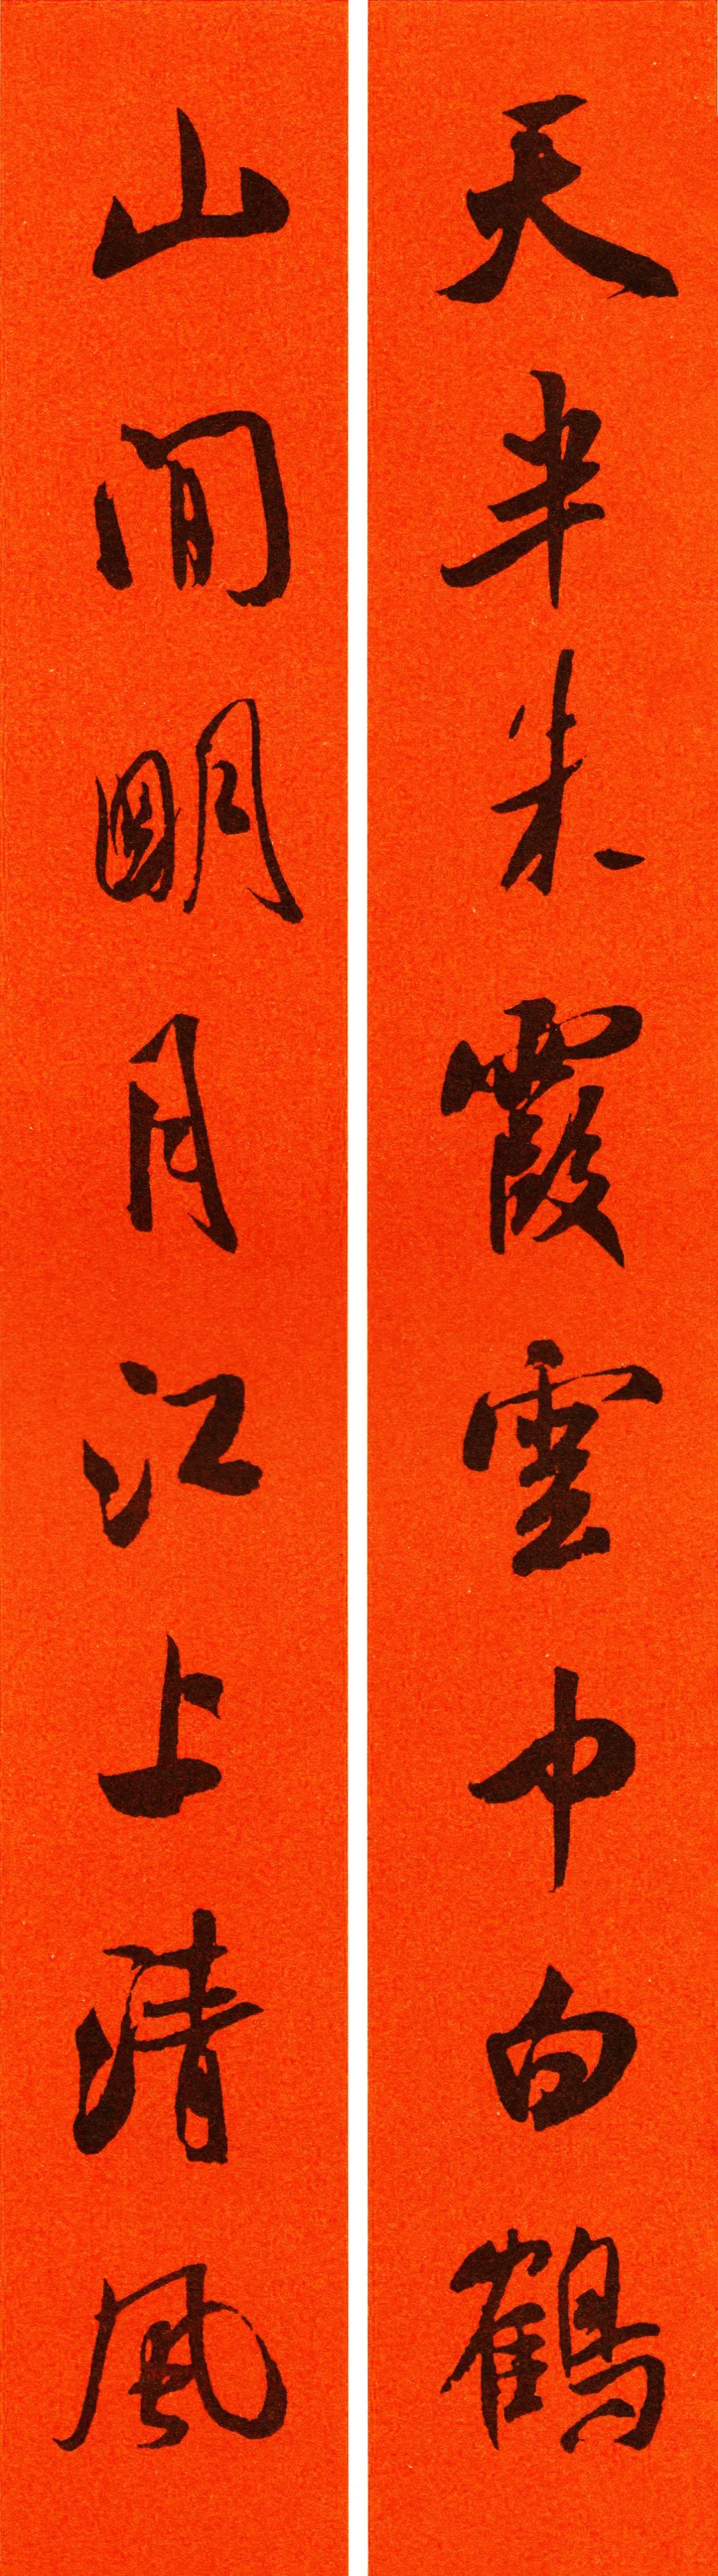 天半朱霞雲中白鶴
山間明月江上清風